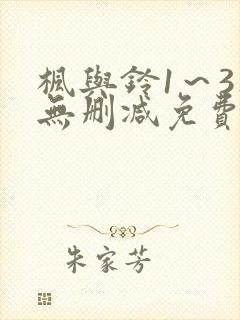 楓與鈴1~3
無刪減免費
朱家芳